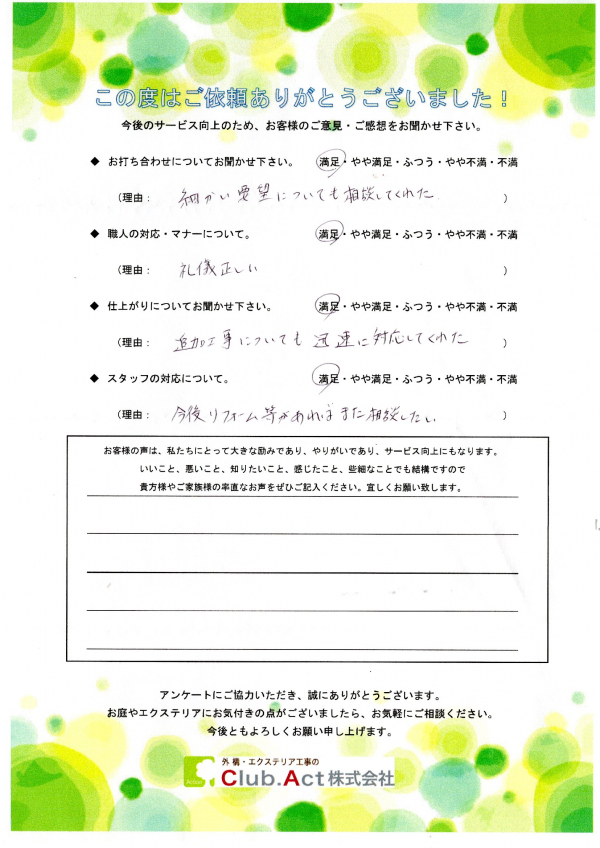 この度はご依頼ありがとうございました！
今後のサービス向上のため、お客様のご意見・ご感想をお聞かせ下さい。
◆ お打ち合わせについてお聞かせ下さい。 満足・やや満足・ふつう・やや不満・不満
(理由： 細かい要望についても相談してくれた )
◆ 職人の対応・マナーについて。 満足・やや満足・ふつう・やや不満・不満
(理由： 礼儀正しい )
◆ 仕上がりについてお聞かせ下さい。 満足・やや満足・ふつう・やや不満・不満
(理由： 追加工事についても迅速に対応してくれた )
◆ スタッフの対応について。 満足・やや満足・ふつう・やや不満・不満
(理由： 今後リフォーム等があればまた相談したい )
お客様の声は、私たちにとって大きな励みであり、やりがいであり、サービス向上にもなります。
いいこと、悪いこと、知りたいこと、感じたこと、些細なことでも結構ですので
貴方様やご家族様の率直なお声をぜひご記入ください。宜しくお願い致します。
アンケートにご協力いただき、誠にありがとうございます。
お庭やエクステリアにお気付きの点がございましたら、お気軽にご相談ください。
今後ともよろしくお願い申し上げます。
外構・エクステリア工事の
Club.Act株式会社